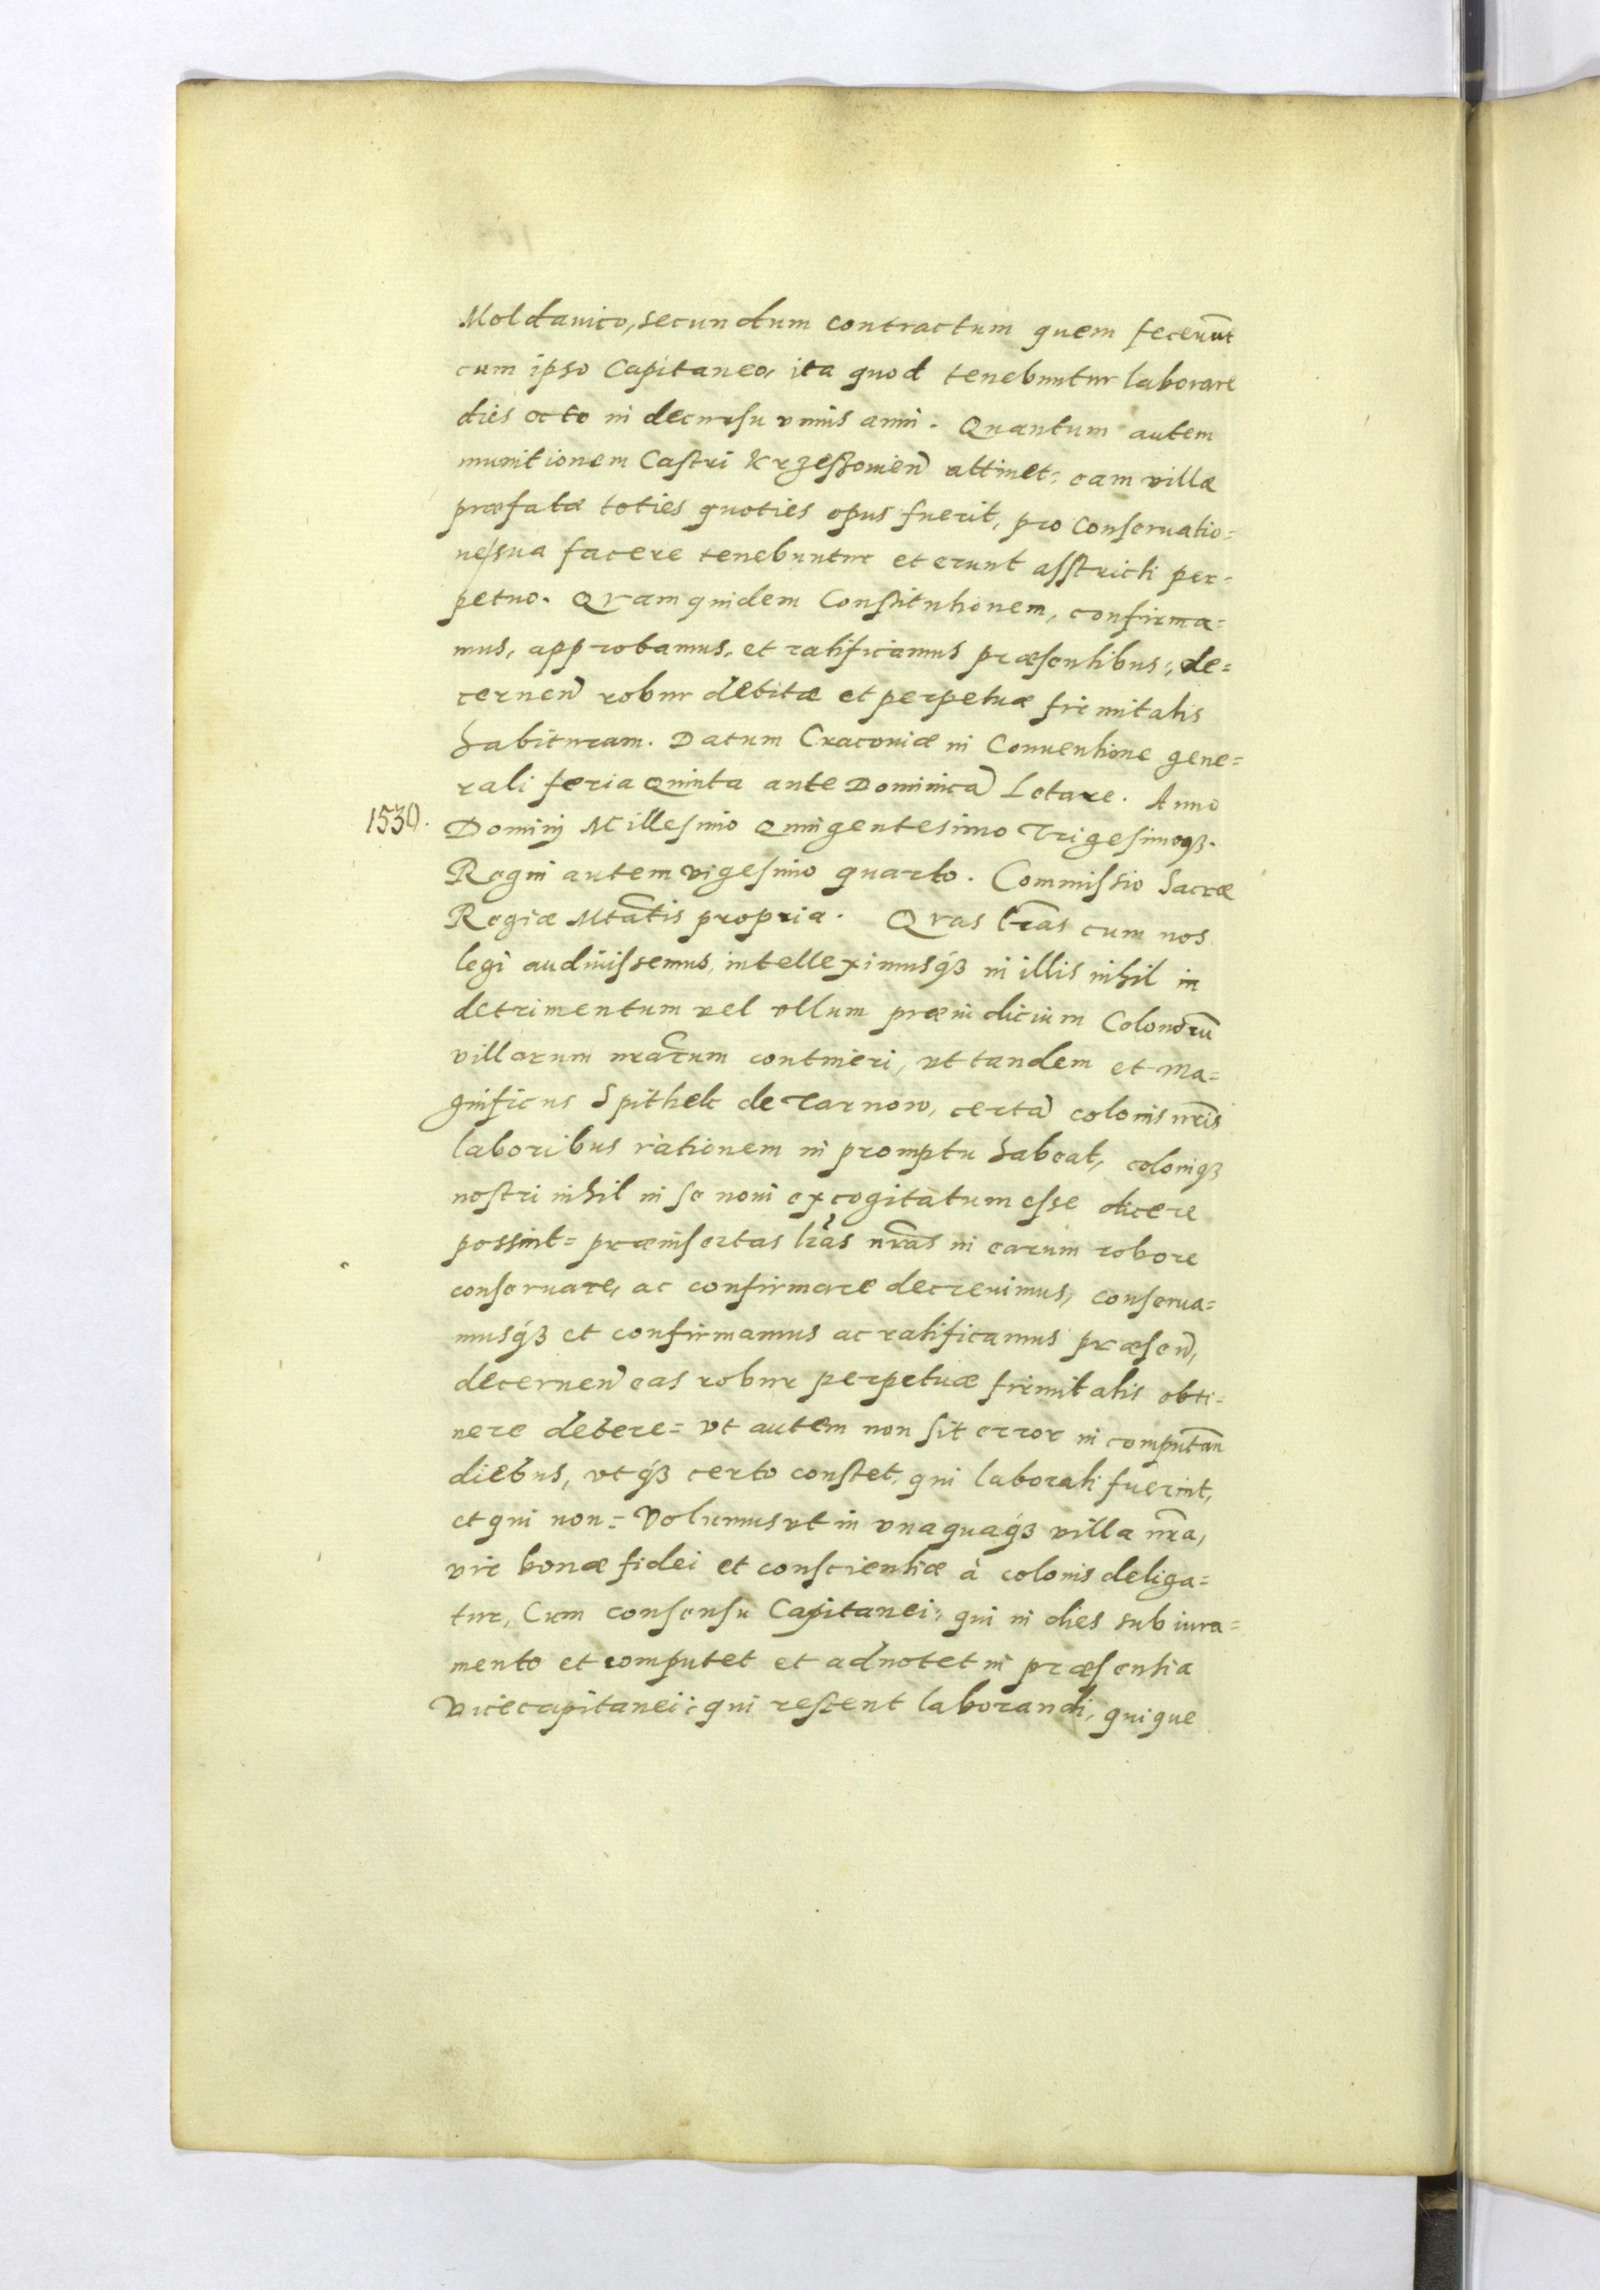 Moldavico, secundum contractum quem feceru͠nt
cum ipso Capitaneo, ita quod tenebuntur laborare
dies octo in decursu vnius anni. Quantum autem
munitionem Castri Krzeszowien̄ attinet, eam villæ
præfatæ toties quoties opus fuerit, pro conseruatio=
ne sua facere tenebuntur et erunt asstricti per=
petuo. Quam quidem Constitutionem, confirma=
mus, approbamus, et ratificamus præsentibus, de=
cernen̄ robur debitæ et perpetuæ firmitatis
habituram. Datum Cracouiæ in Conuentione gene=
rali feria Quinta ante Dominicā Letare. Anno
1530. Dominj Millesimo Quingentesimo Trigesimoqꝫ.
Regni autem vigesimo quarto. Commissio Sacræ
Regiæ Mta͠tis propria. Quas lr͠as cum nos
legi audiuissemus, intelleximusqꝫ in illis nihil in
detrimentum vel vllum præiudicium Colonorū
villarum nr͠arum contineri, vt tandem et Ma=
gnificus Spithek de Tarnow, certā colonis nr͠is
laboribus rationem in promptu habeat, coloniqꝫ
nostri nihil in se noui excogitatum esse dicere
possint= præinsertas lr͠as nr͠as in earum robore
conseruare, ac confirmare decreuimus, conserua=
musqꝫ et confirmamus ac ratificamus præsen̄,
decernen̄ eas robur perpetuæ firmitatis obti=
nere debere= vt autem non sit error in computan̄
diebus, vtqꝫ certo constet, qui laborati fuerint,
et qui non= Volumus vt in vnaquaqꝫ villa nr͠a,
vir bonæ fidei et conscientiæ à colonis deliga=
tur, Cum consensu Capitanei, qui in dies sub iura=
mento et computet et adnotet in præsentia
Vicecapitanei, qui restent laborandi, quique